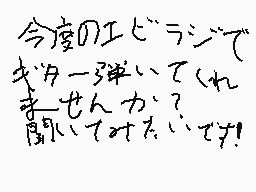 今度のエビラジで
ギター弾いてくれ
ませんか?
聞いてみたいです!